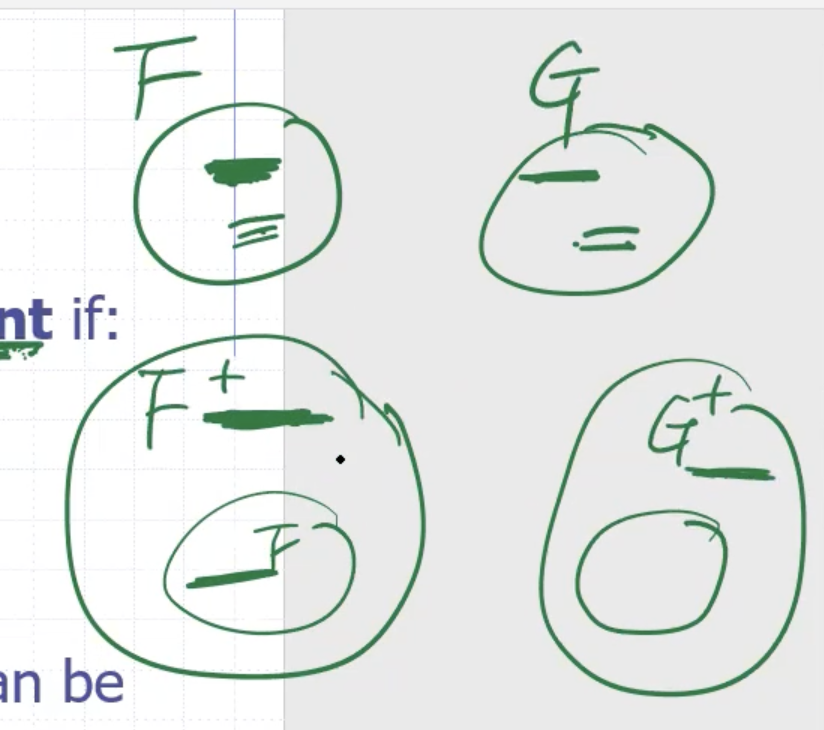 F G
nt if:
F+ G+
F
an be